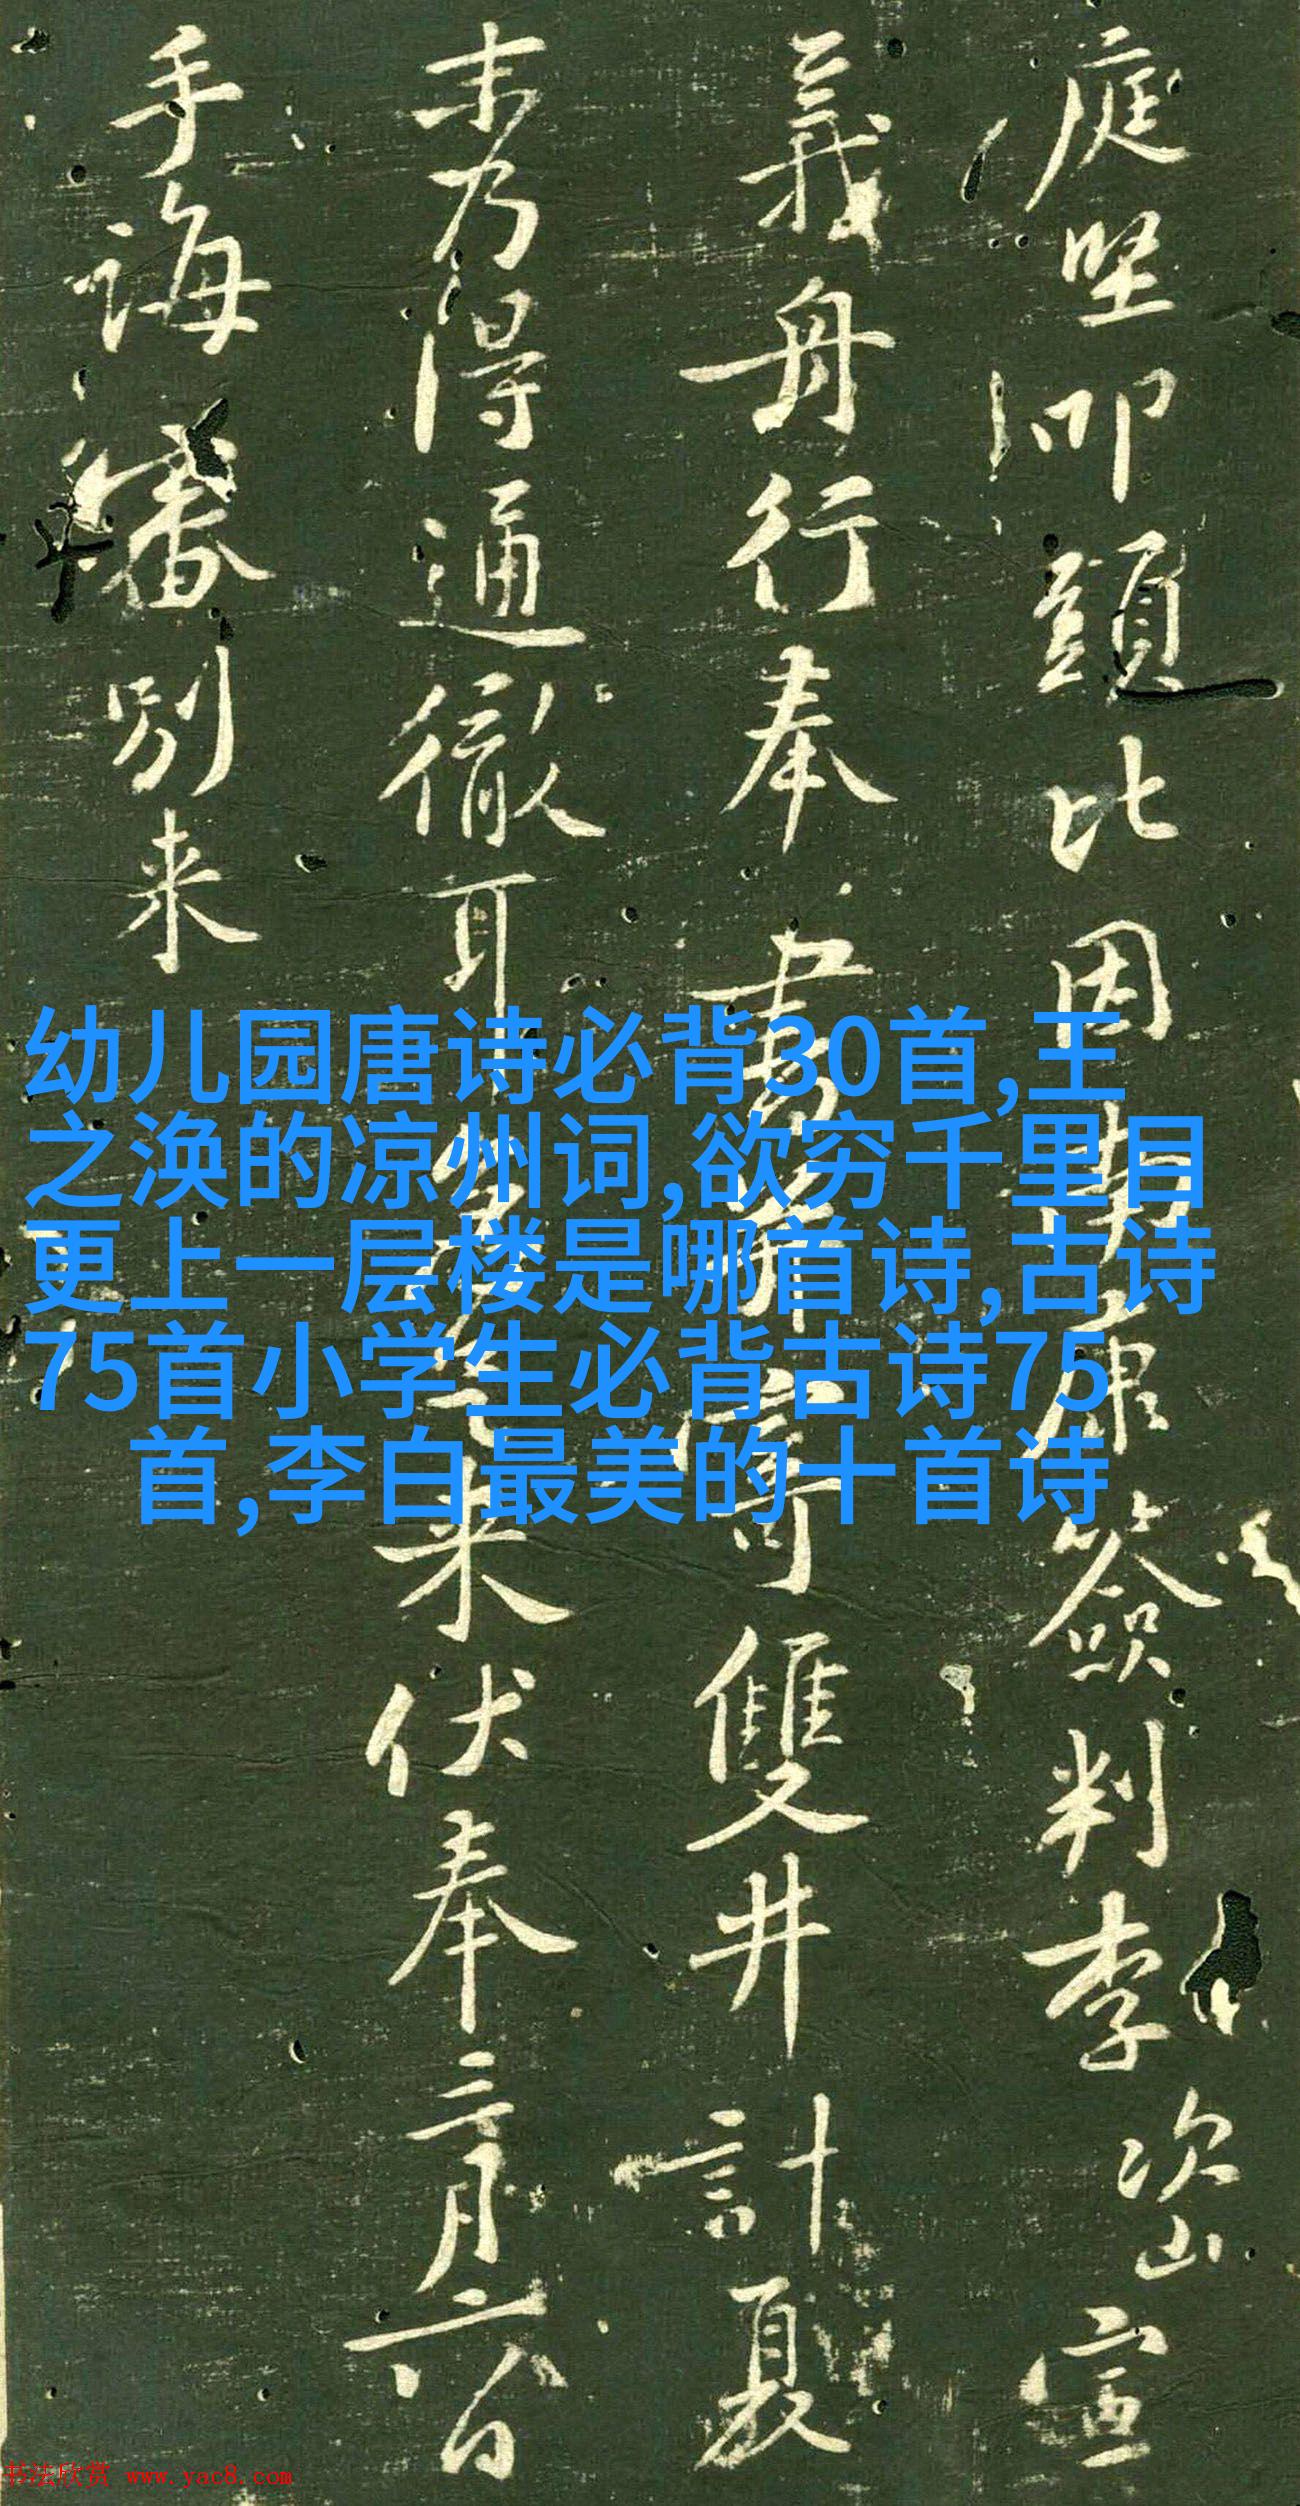 庭堅叩頭比因南康簽判李次山宣
義舟行奉書并寄雙井計夏
末乃得通徹耳来伏奉三月六日
手誨審別来
幼儿园唐诗必背30首,王
之涣的凉州词,欲穷千里目
更上一层楼是哪首诗,古诗
75首小学生必背古诗75
首,李白最美的十首诗
书法欣赏 www.yac8.com